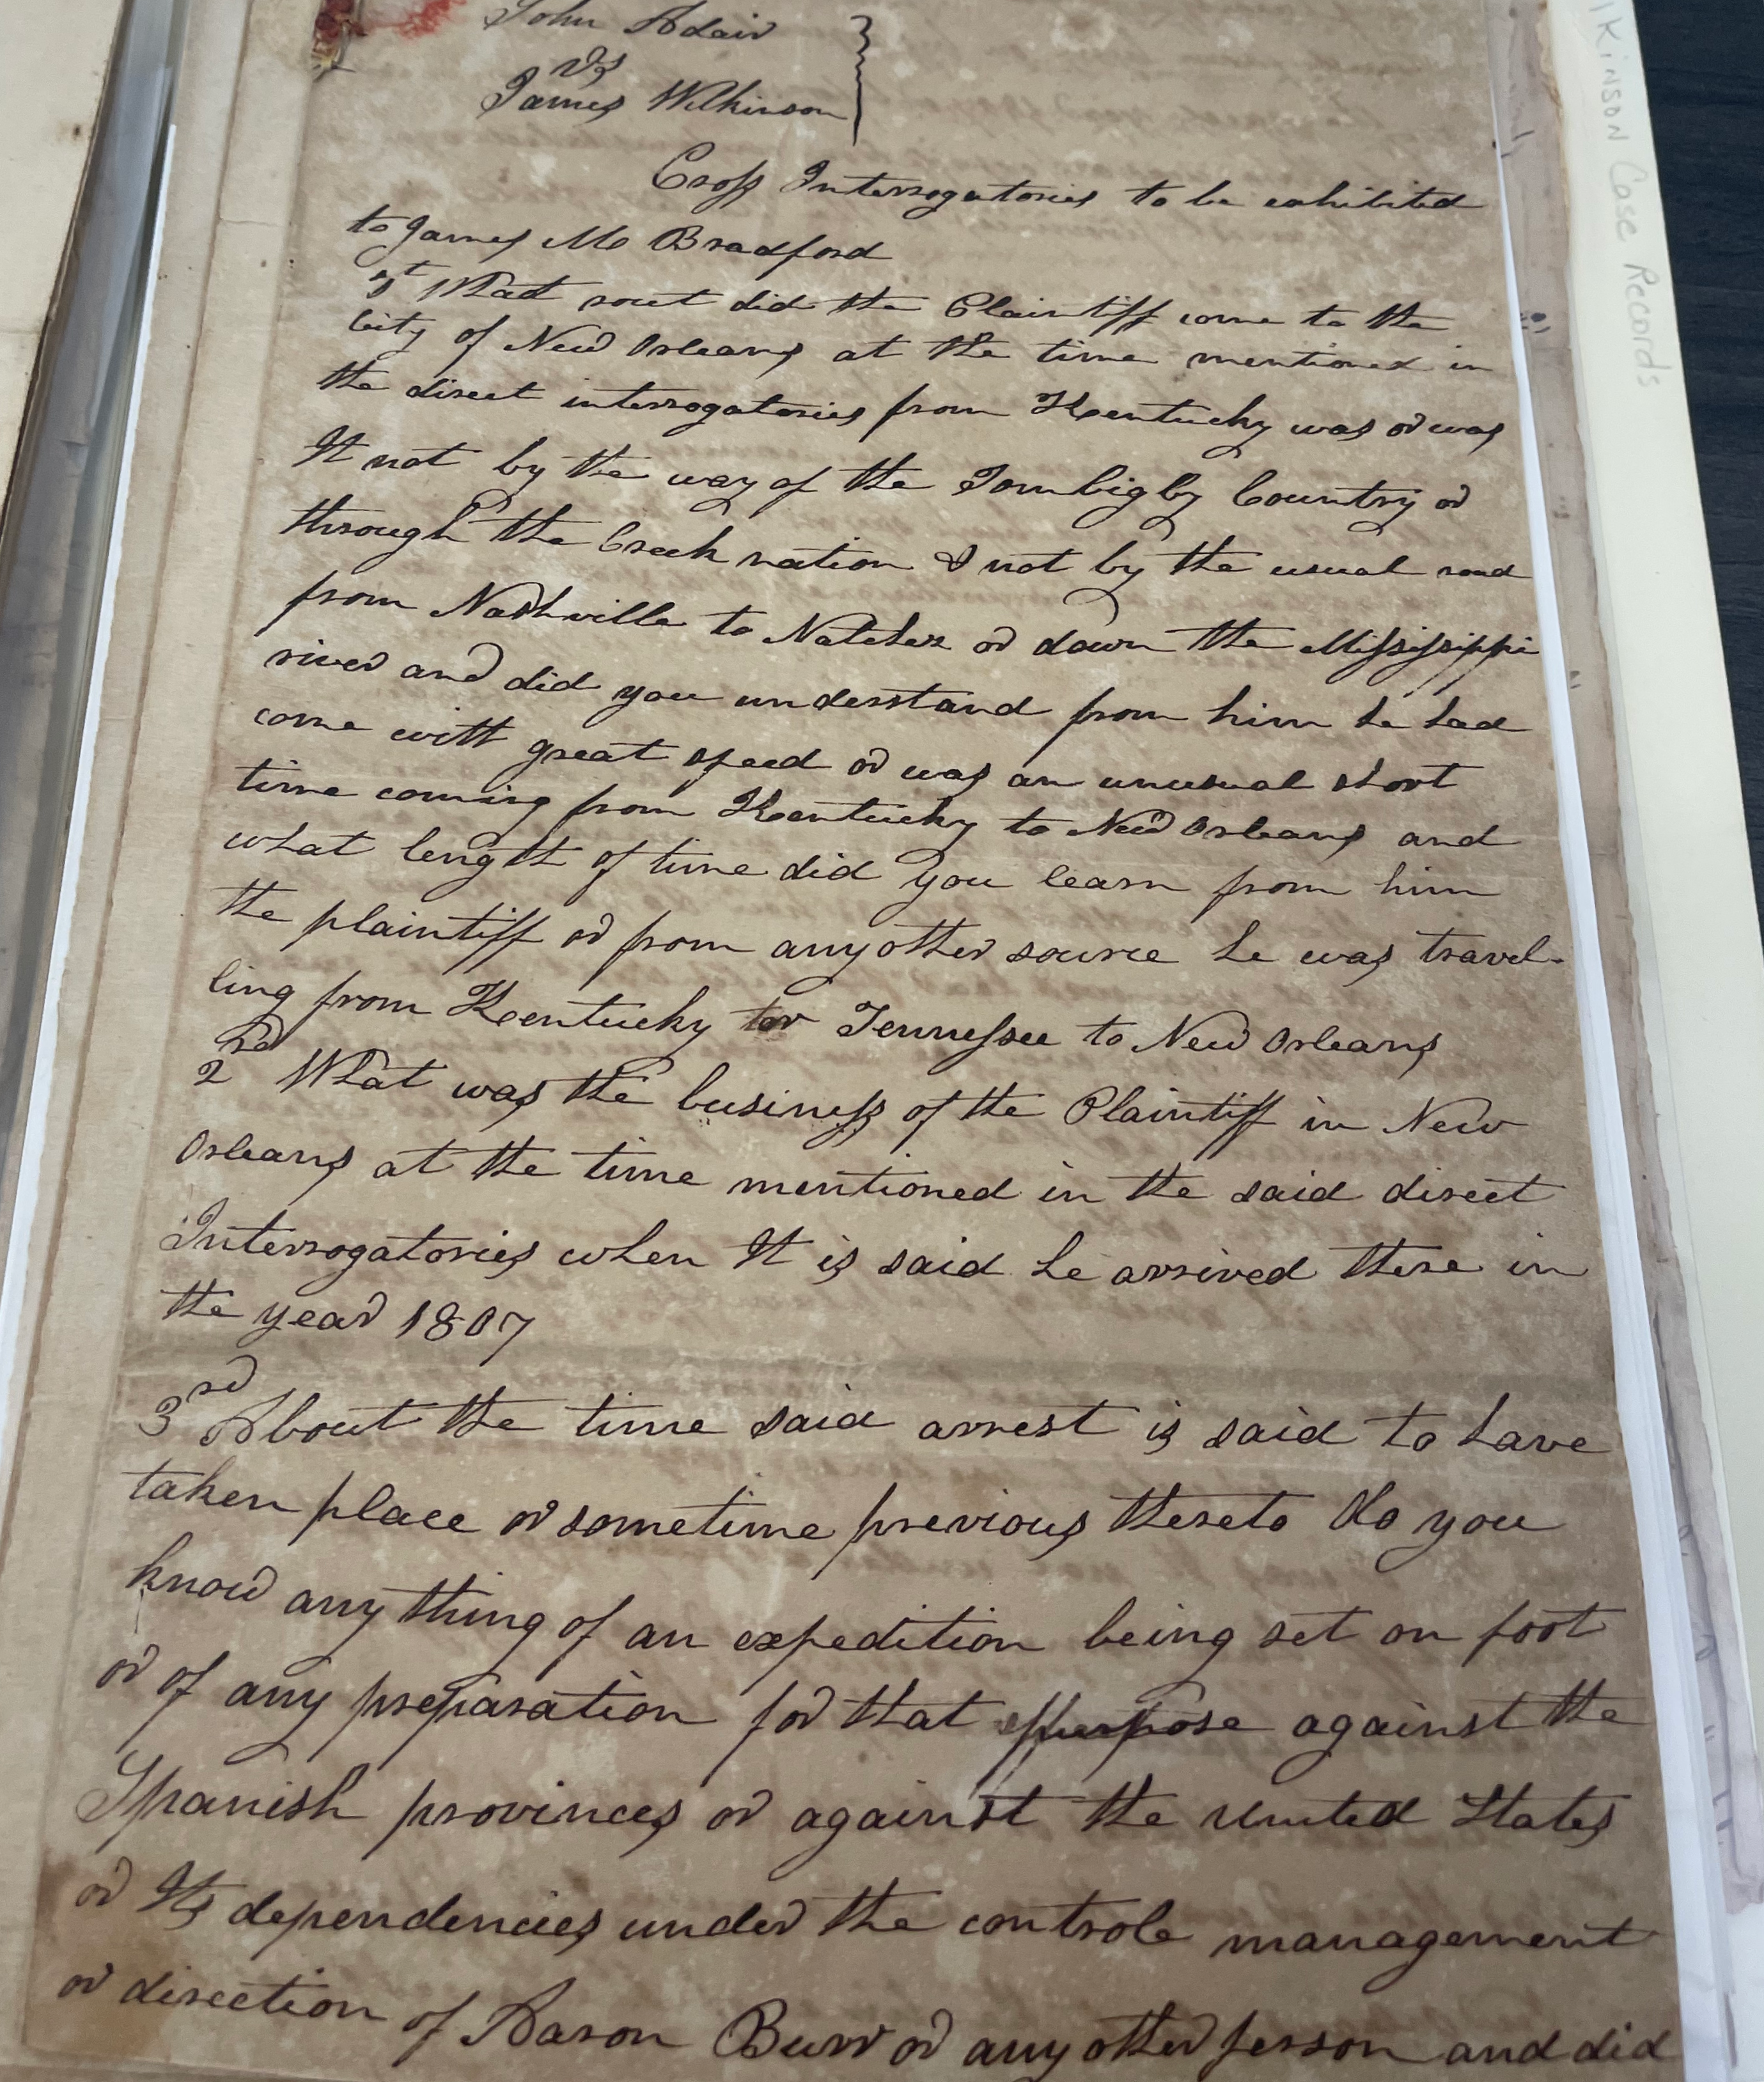 John Adair
vs
James Wilkinson
Cross Interrogatories to be exhibited
to James M Bradford
1st What rout did the Plaintiff come to the
City of New Orleans at the time mentioned in
the direct interrogatories from Kentucky was or was
It not by the way of the Tombigby Country or
through the Creek nation & not by the usual road
from Nashville to Natchez or down the Mississippi
river and did you understand from him he had
come with great speed or was an unusual short
time coming from Kentucky to New Orleans and
what length of time did you learn from him
the plaintiff or from any other source he was travel-
ling from Kentucky or Tennessee to New Orleans
2nd What was the business of the Plaintiff in New
Orleans at the time mentioned in the said direct
Interrogatories when It is said he arrived there in
the year 1807
3rd About the time said arrest is said to have
taken place or sometime previous thereto do you
know any thing of an expedition being set on foot
or of any preparation for that purpose against the
Spanish provinces or against the United States
or Its dependencies under the controle management
or direction of Aaron Burr or any other person and did
lkinson Case Records